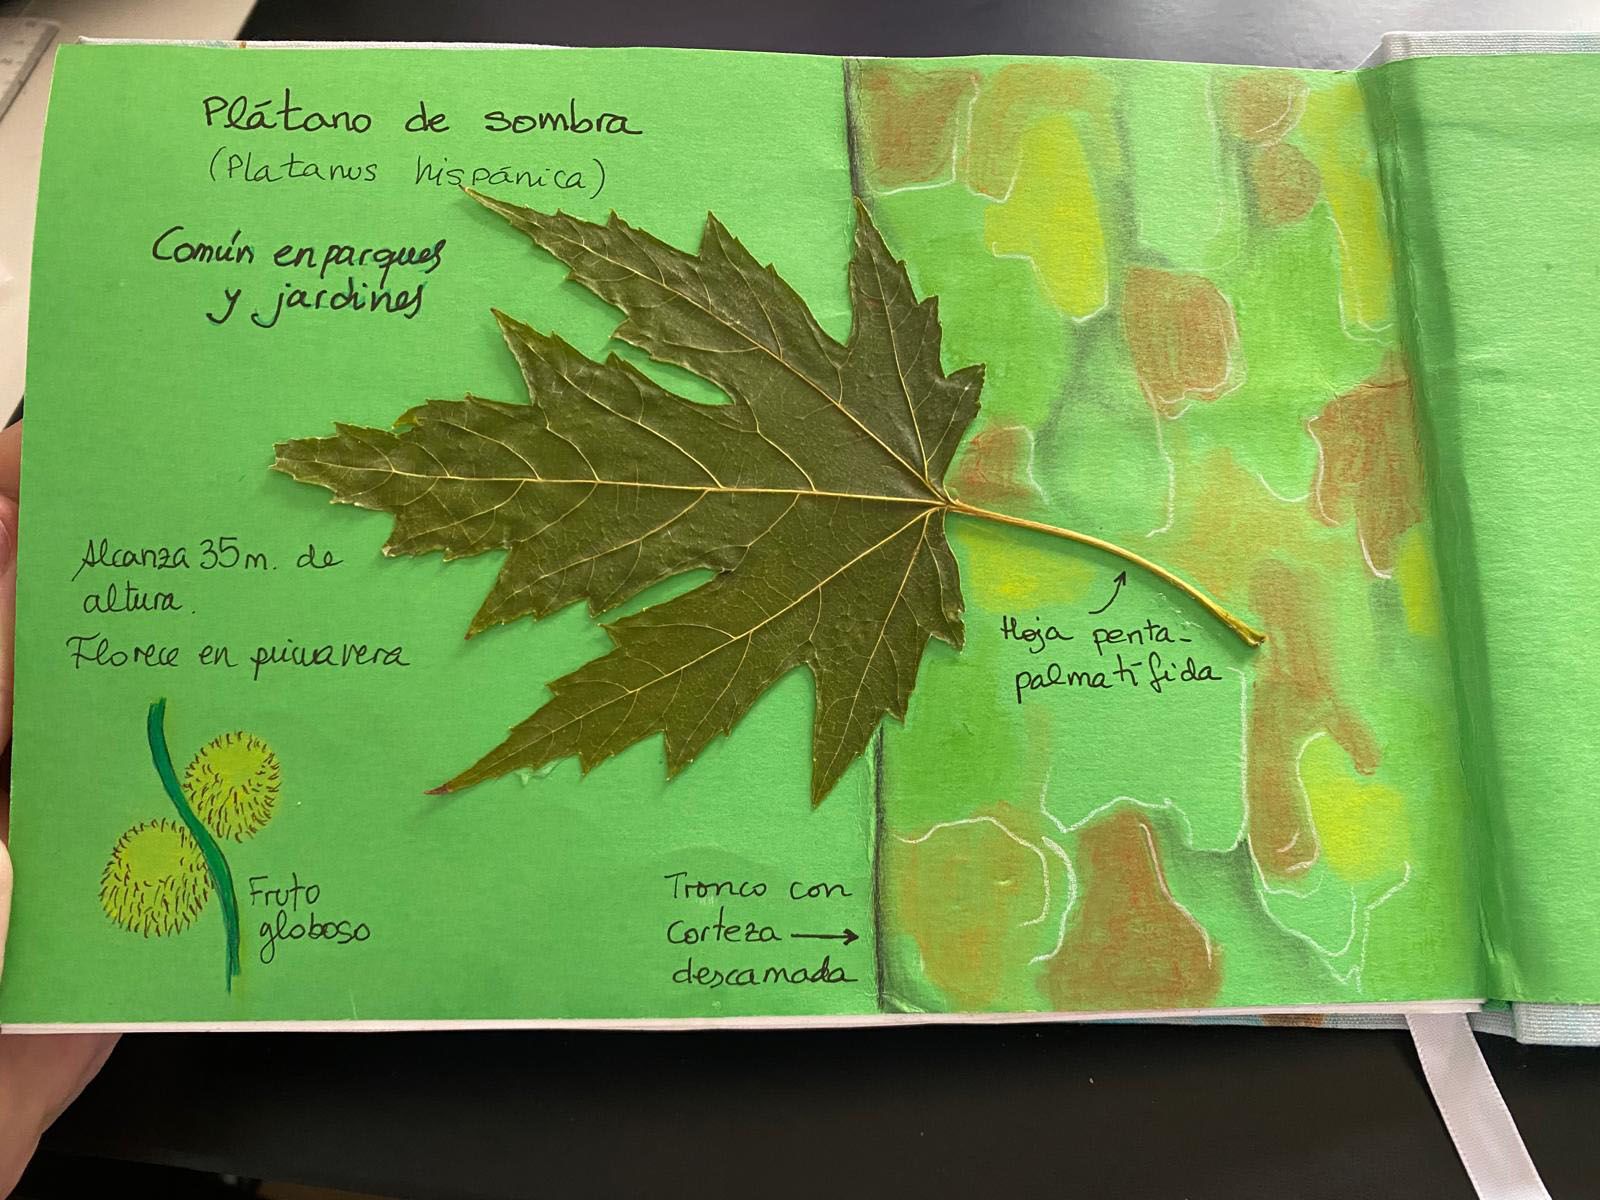 Plátano de sombra
(Platanus hispánica)
Común en parques
y jardines
Alcanza 35m. de
altura.
Florece en primavera
Hoja penta-
palmatífida
Fruto
globoso
Tronco con
Corteza →
descamada